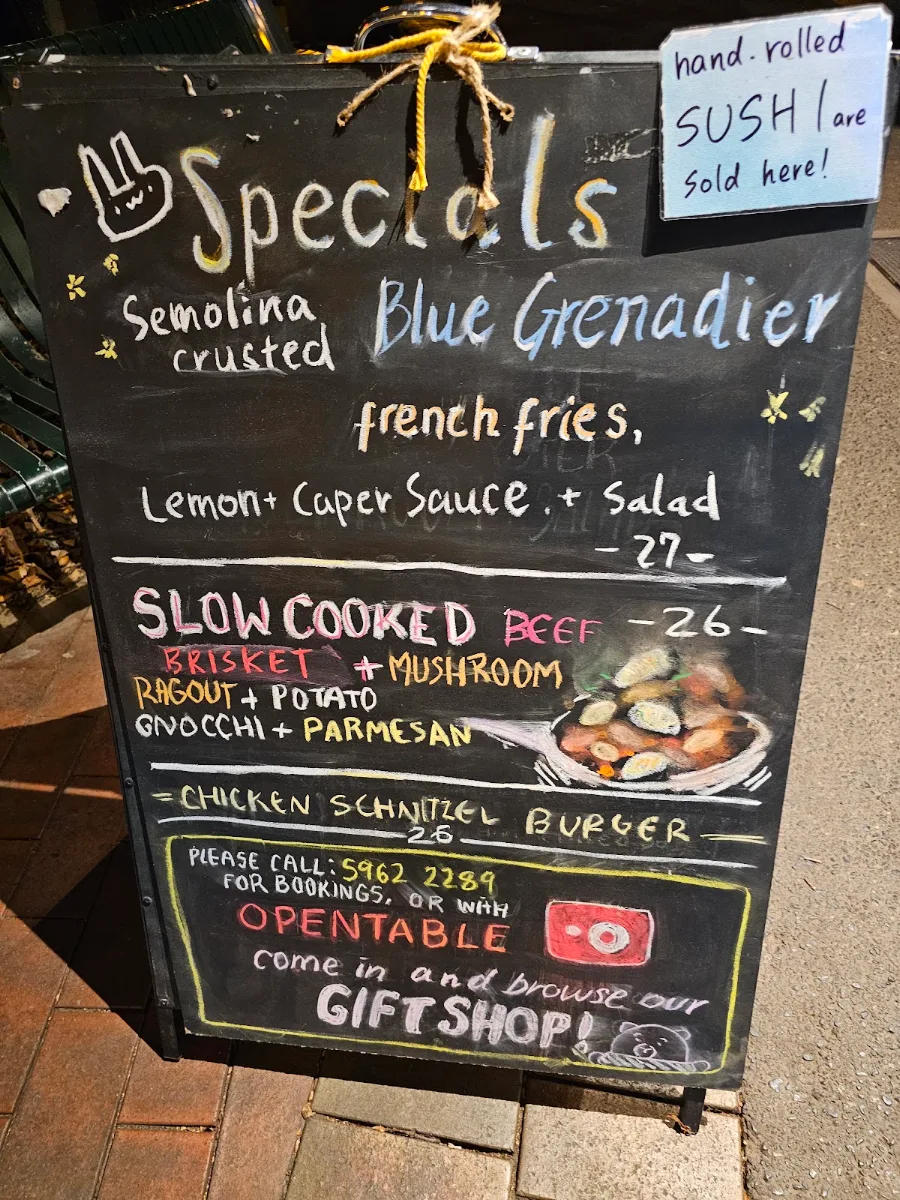 hand-rolled
SUSHI are
sold here!
Specials
Semolina
crusted
Blue Grenadier
french fries,
Lemon + Caper Sauce. + Salad
- 27 -
SLOW COOKED BEEF - 26 -
BRISKET + MUSHROOM
RAGOUT + POTATO
GNOCCHI + PARMESAN
= CHICKEN SCHNITZEL BURGER =
26
PLEASE CALL: 5962 2289
FOR BOOKINGS, OR WITH
OPENTABLE
come in and browse our
GIFT SHOP!